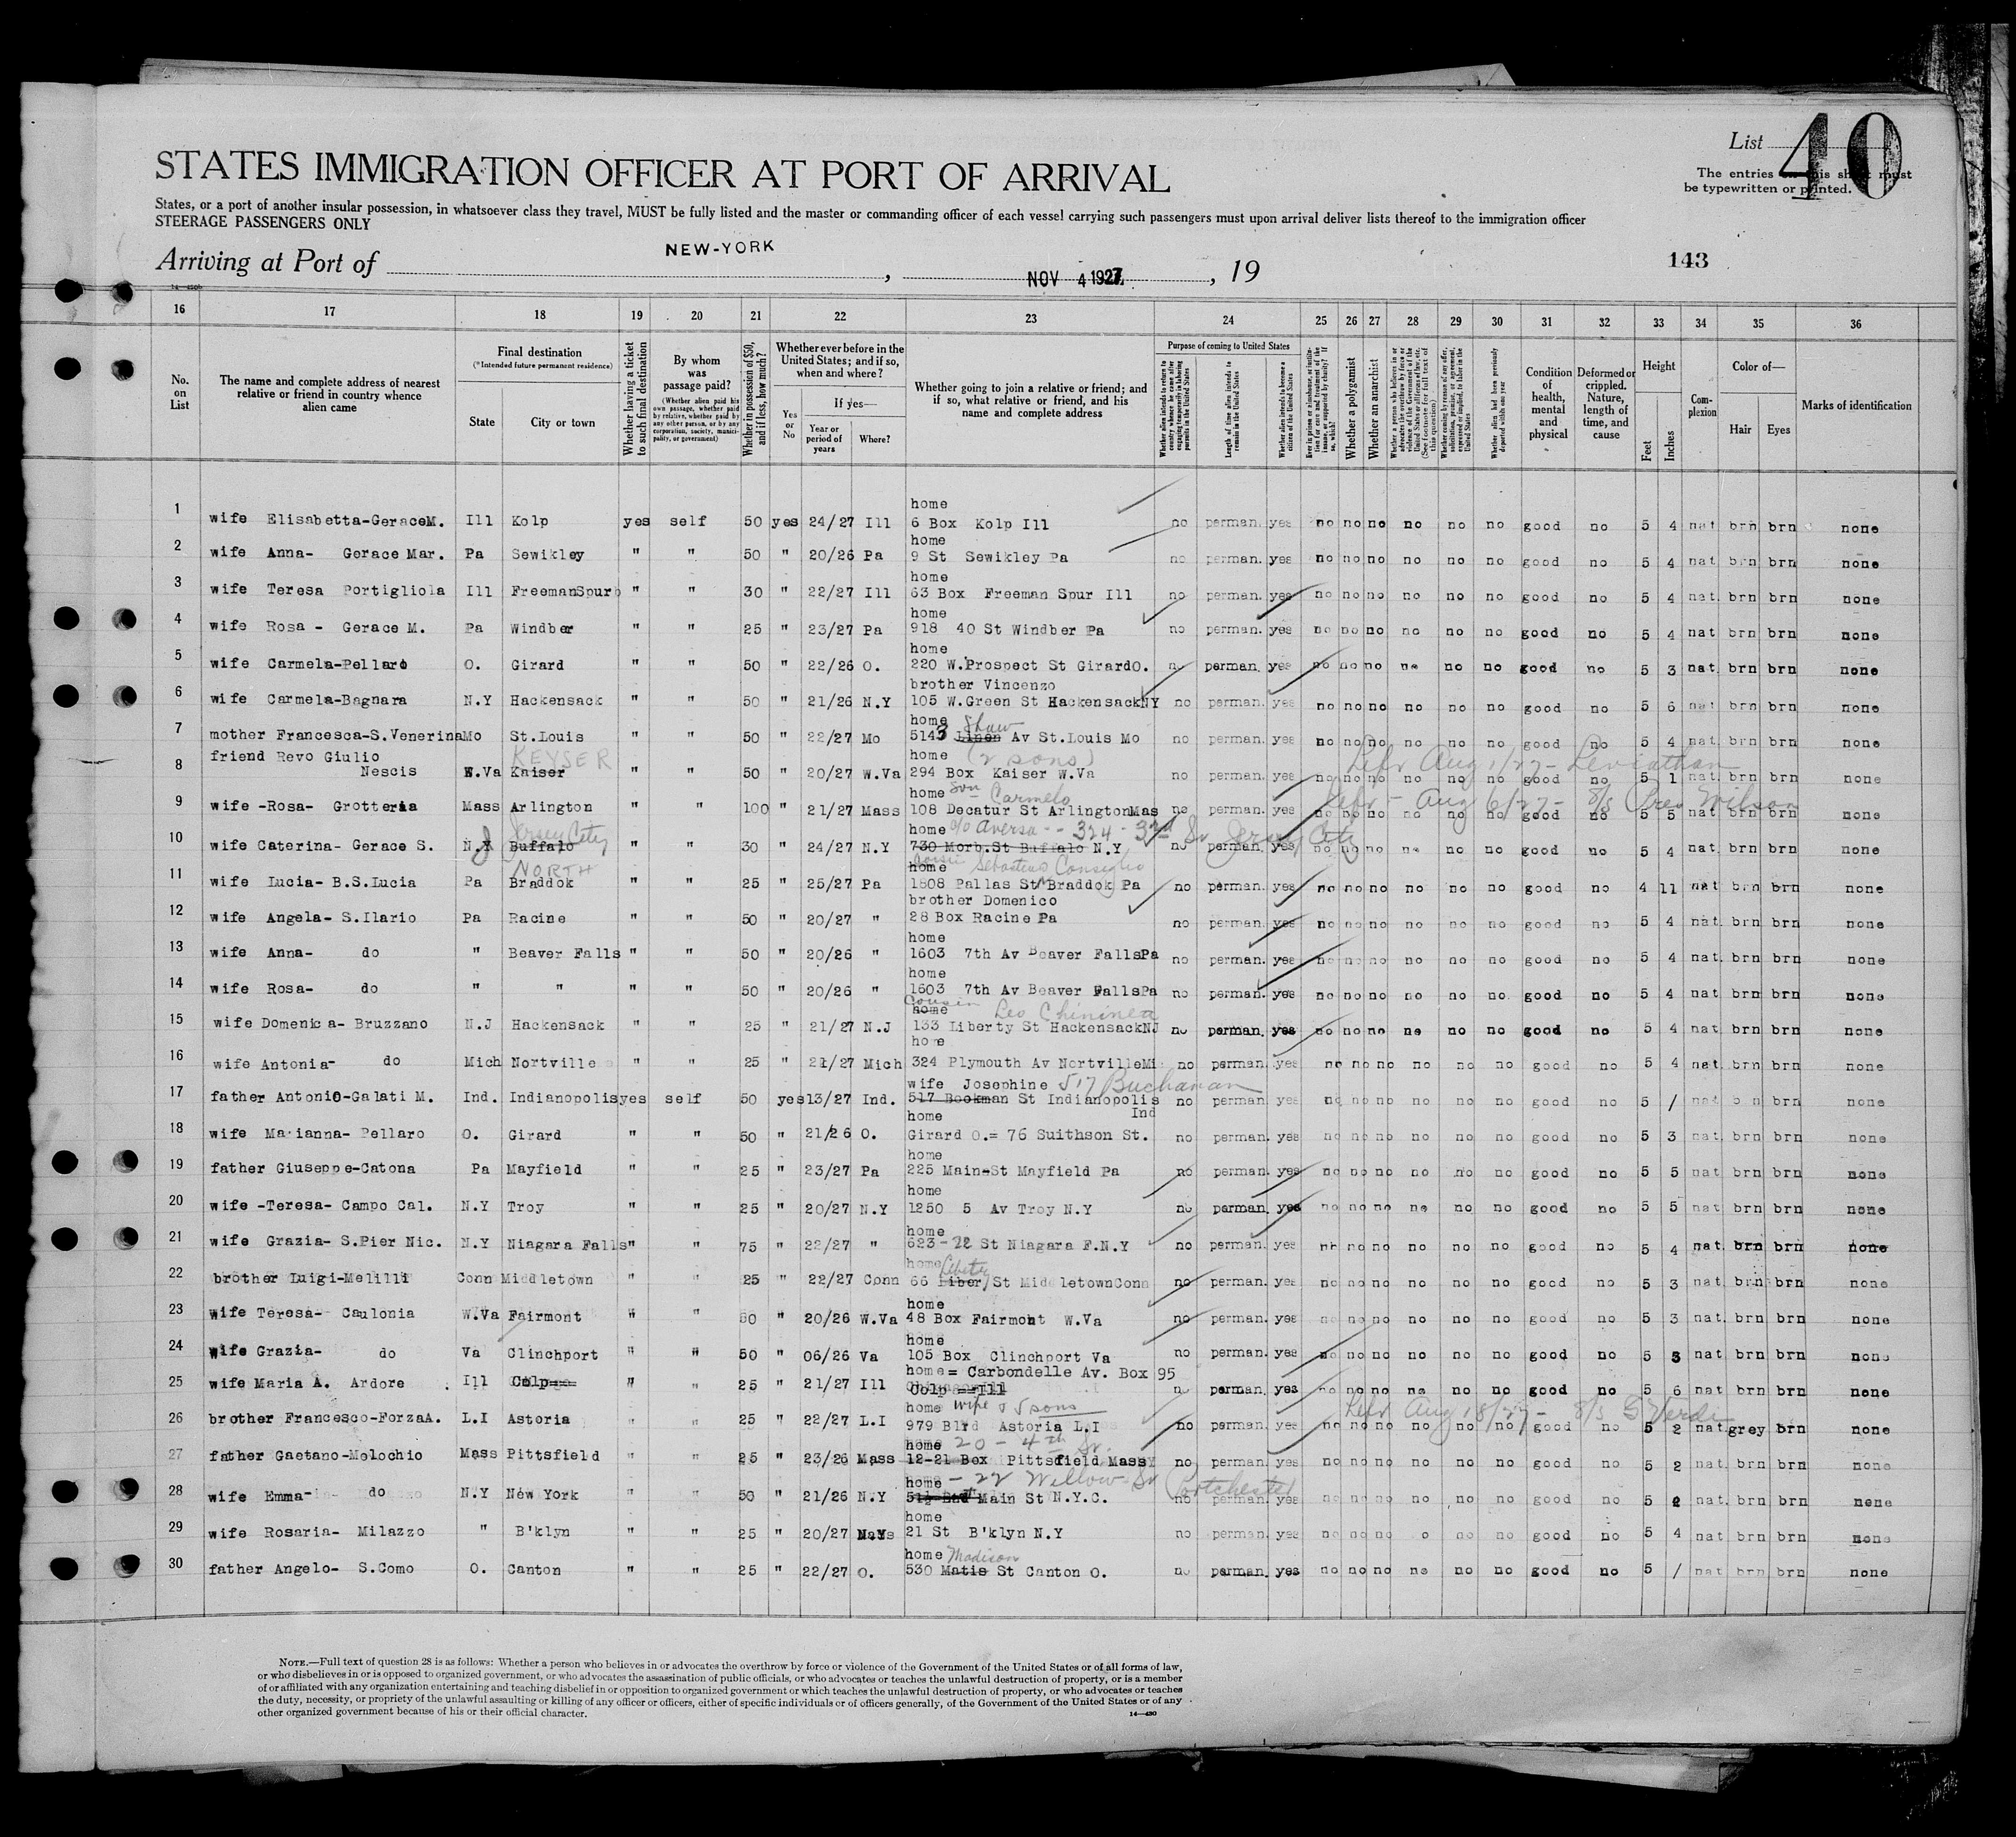 List 40
STATES IMMIGRATION OFFICER AT PORT OF ARRIVAL
The entries on this sheet must
be typewritten or printed.
States, or a port of another insular possession, in whatsoever class they travel, MUST be fully listed and the master or commanding officer of each vessel carrying such passengers must upon arrival deliver lists thereof to the immigration officer
STEERAGE PASSENGERS ONLY
Arriving at Port of NEW-YORK, NOV 4 1927, 19
143
16 17 18 19 20 21 22 23 24 25 26 27 28 29 30 31 32 33 34 35 36
No. on List
The name and complete address of nearest relative or friend in country whence alien came
Final destination
(*Intended future permanent residence)
State
City or town
Whether having a ticket to such final destination
By whom was passage paid?
(Whether alien paid his own passage, whether paid by any other person, or by any corporation, society, municipality, or government)
Whether in possession of $50, and if less, how much?
Whether ever before in the United States; and if so, when and where?
Yes or No
If yes—
Year or period of years
Where?
Whether going to join a relative or friend; and if so, what relative or friend, and his name and complete address
Purpose of coming to United States
Length of time alien intends to remain in the United States
Whether alien intends to become a citizen of the United States
Whether a polygamist
Whether an anarchist
Condition of health, mental and physical
Deformed or crippled. Nature, length of time, and cause
Height
Feet
Inches
Complexion
Color of—
Hair
Eyes
Marks of identification
1 wife Elisabetta-GeraceM. Ill Kolp yes self 50 yes 24/27 Ill home 6 Box Kolp Ill no perman. yes no no no no no no good no 5 4 nat brn brn none
2 wife Anna- Gerace Mar. Pa Sewikley " " 50 " 20/26 Pa home 9 St Sewikley Pa no perman. yes no no no no no no good no 5 4 nat. brn brn none
3 wife Teresa Portigliola Ill FreemanSpur " " 30 " 22/27 Ill home 63 Box Freeman Spur Ill no perman. yes no no no no no no good no 5 4 nat. brn brn none
4 wife Rosa - Gerace M. Pa Windber " " 25 " 23/27 Pa home 918 40 St Windber Pa no perman. yes no no no no no no good no 5 4 nat brn brn none
5 wife Carmela-Pellaro O. Girard " " 50 " 22/26 O. home 220 W.Prospect St GirardO. no perman. yes no no no no no no good no 5 3 nat. brn brn none
6 wife Carmela-Bagnara N.Y Hackensack " " 50 " 21/26 N.Y brother Vincenzo 105 W.Green St HackensackNY no perman. yes no no no no no no good no 5 6 nat brn brn none
7 mother Francesca-S.VenerinaMo St.Louis " " 50 " 22/27 Mo home 5143 Shaw Av St.Louis Mo no perman. yes no no no no no no good no 5 4 nat. brn brn none
8 friend Revo Giulio Nescis W.Va Kaiser KEYSER " " 50 " 20/27 W.Va home (2 sons) 294 Box Kaiser W.Va no perman. yes no no no no no no good no 5 1 nat. brn brn none
Aug 1/27- Leviathan
9 wife -Rosa- Grotteria Mass Arlington " " 100 " 21/27 Mass home son Carmelo 108 Decatur St ArlingtonMas no perman. yes no no no no no no good no 5 5 nat. brn brn none
Aug 6/27- S/S Pres Wilson
10 wife Caterina- Gerace S. N.Y J Buffalo Jersey City " " 30 " 24/27 N.Y home c/o Aversa - 324 - 3rd St Jersey City 730 Morb.St Buffalo N.Y no perman. yes no no no no no no good no 5 4 nat. brn brn none
11 wife Lucia- B.S.Lucia Pa NORTH Braddok " " 25 " 25/27 Pa home cousin Sebastiano Consiglio 1808 Pallas St N Braddok Pa no perman. yes no no no no no no good no 4 11 nat brn brn none
12 wife Angela- S.Ilario Pa Racine " " 50 " 20/27 " brother Domenico 28 Box Racine Pa no perman. yes no no no no no no good no 5 4 nat. brn brn none
13 wife Anna- do " Beaver Falls " " 50 " 20/26 " home 1603 7th Av Beaver FallsPa no perman. yes no no no no no no good no 5 4 nat. brn brn none
14 wife Rosa- do " " " " 50 " 20/26 " home 1603 7th Av Beaver FallsPa no perman. yes no no no no no no good no 5 4 nat brn brn none
15 wife Domenica- Bruzzano N.J Hackensack " " 25 " 21/27 N.J home Cousin Leo 133 Liberty St HackensackNJ no perman. yes no no no no no no good no 5 4 nat brn brn none
16 wife Antonia- do Mich Nortville " " 25 " 21/27 Mich home 324 Plymouth Av NortvilleMi no perman. yes no no no no no no good no 5 4 nat. brn brn none
17 father Antonio-Galati M. Ind. Indianopolis yes self 50 yes 13/27 Ind. wife Josephine 517 Buchanan 517 Bookman St Indianopolis Ind no perman. yes no no no no no no good no 5 / nat brn brn none
18 wife Marianna- Pellaro O. Girard " " 50 " 21/26 O. home Girard O.= 76 Suithson St. no perman. yes no no no no no no good no 5 3 nat. brn brn none
19 father Giuseppe-Catona Pa Mayfield " " 25 " 23/27 Pa home 225 Main-St Mayfield Pa no perman. yes no no no no no no good no 5 5 nat brn brn none
20 wife -Teresa- Campo Cal. N.Y Troy " " 25 " 20/27 N.Y home 1250 5 Av Troy N.Y no perman. yes no no no no no no good no 5 5 nat brn brn none
21 wife Grazia- S.Pier Nic. N.Y Niagara Falls " " 75 " 22/27 " home 623-22 St Niagara F.N.Y no perman. yes no no no no no no good no 5 4 nat. brn brn none
22 brother Luigi-Melilli Conn Middletown " " 25 " 22/27 Conn home 66 Liber Liberty St MiddletownConn no perman. yes no no no no no no good no 5 3 nat. brn brn none
23 wife Teresa- Caulonia W.Va Fairmont " " 50 " 20/26 W.Va home 48 Box Fairmont W.Va no perman. yes no no no no no no good no 5 3 nat. brn brn none
24 wife Grazia- do Va Clinchport " " 50 " 06/26 Va home 105 Box Clinchport Va no perman. yes no no no no no no good no 5 3 nat brn brn none
25 wife Maria A. Ardore Ill Colp " " 25 " 21/27 Ill home = Carbondelle Av. Box 95 Colp Ill no perman. yes no no no no no no good no 5 6 nat brn brn none
26 brother Francesco-ForzaA. L.I Astoria " " 25 " 22/27 L.I home wife & 5 sons 979 Blvd Astoria L.I no perman. yes no no no no no no good no 5 2 nat. grey brn none
Aug 18/27- S/S G Verdi
27 father Gaetano-Molochio Mass Pittsfield " " 25 " 23/26 Mass home 20 - 4th St. 12-21 Box Pittsfield Mass no perman. yes no no no no no no good no 5 2 nat. brn brn none
28 wife Emma- do N.Y New York " " 50 " 21/26 N.Y home - 22 Willow St Portchester Main St N.Y.C. no perman. yes no no no no no no good no 5 2 nat. brn brn none
29 wife Rosaria- Milazzo " B'klyn " " 25 " 20/27 home 21 St B'klyn N.Y no perman. yes no no no o no no good no 5 4 nat brn brn none
30 father Angelo- S.Como O. Canton " " 25 " 22/27 O. home Madison 530 Matis St Canton O. no perman. yes no no no no no no good no 5 / nat brn brn none
NOTE.—Full text of question 28 is as follows: Whether a person who believes in or advocates the overthrow by force or violence of the Government of the United States or of all forms of law,
or who disbelieves in or is opposed to organized government, or who advocates the assassination of public officials, or who advocates or teaches the unlawful destruction of property, or is a member
of or affiliated with any organization entertaining and teaching disbelief in or opposition to organized government or which teaches the unlawful destruction of property, or who advocates or teaches
the duty, necessity, or propriety of the unlawful assaulting or killing of any officer or officers, either of specific individuals or of officers generally, of the Government of the United States or of any
other organized government because of his or their official character.
14—430